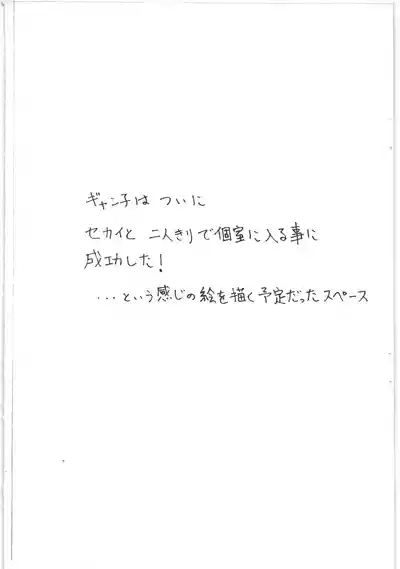 ギャン子は ついに
セカイと 二人きりで個室に入る事に
成功した！
...という感じの絵を描く予定だったスペース